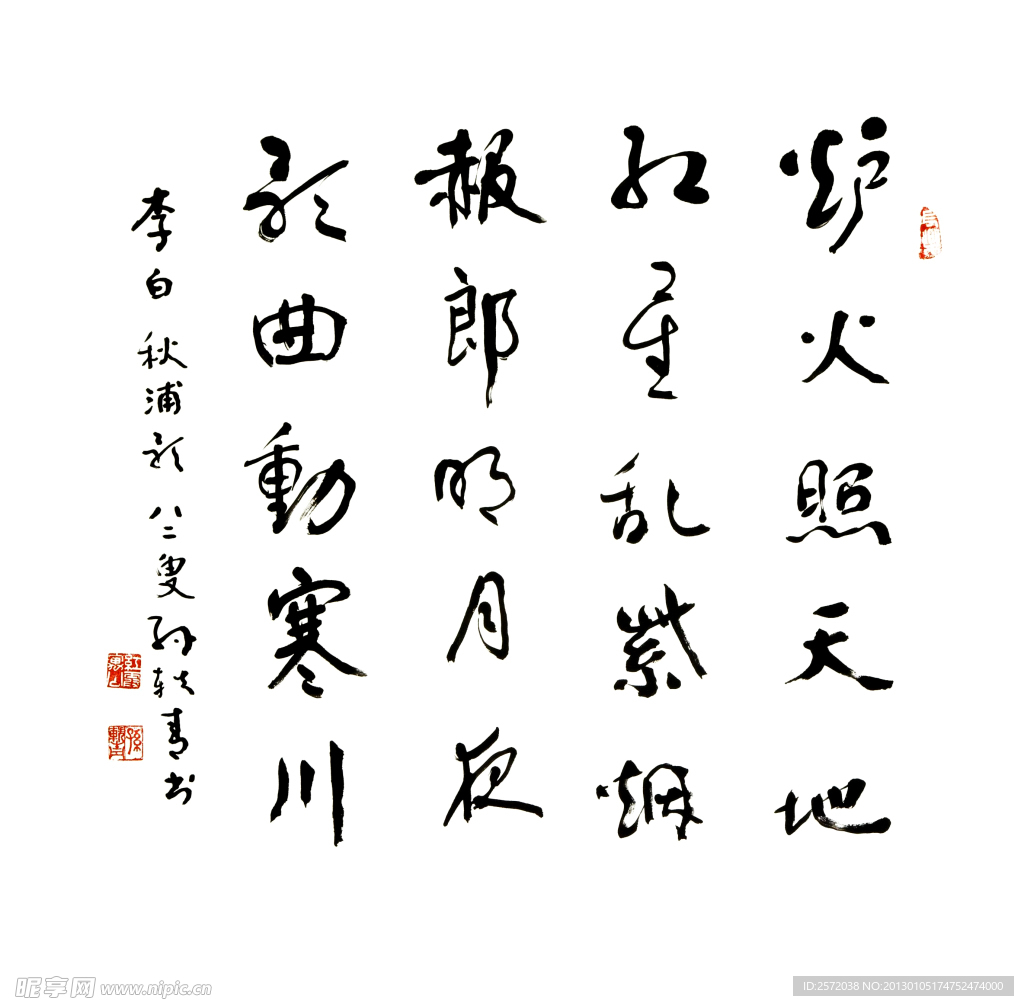 炉火照天地
红星乱紫烟
赧郎明月夜
歌曲動寒川
李白秋浦歌八二叟孙轶青书
昵享网 www.nipic.cn
ID:2572038 NO:20130105174752474000